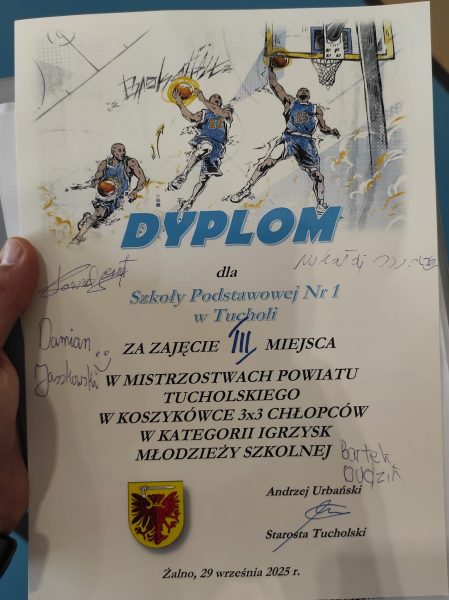 DYPLOM
dla
Szkoły Podstawowej Nr 1
w Tucholi
ZA ZAJĘCIE III MIEJSCA
Damian
Jaszkowski
W MISTRZOSTWACH POWIATU
TUCHOLSKIEGO
W KOSZYKÓWCE 3x3 CHŁOPCÓW
W KATEGORII IGRZYSK
MŁODZIEŻY SZKOLNEJ
Bartek
Andrzej Urbański
Starosta Tucholski
Żalno, 29 września 2025 r.